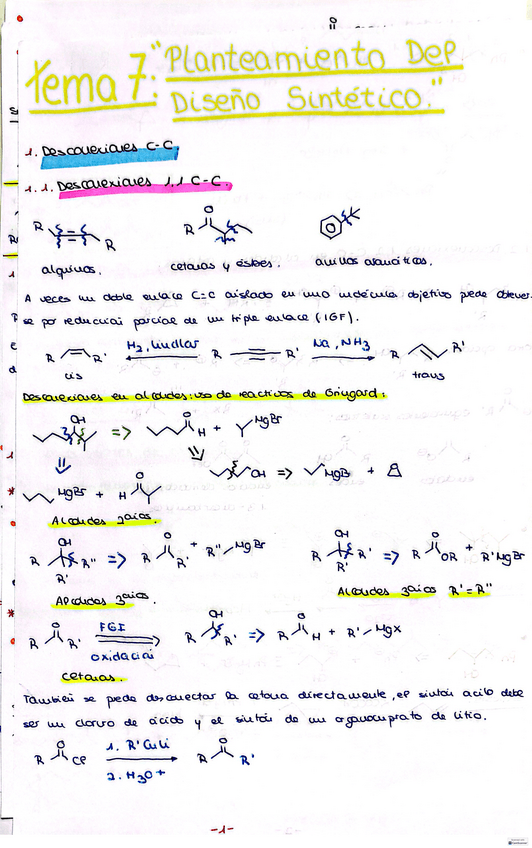 Tema 7: "Planteamiento Del
Diseño Sintético."
1. Desconexiones C-C
1.1. Desconexiones 1,1 C-C.
R R
O R
alquinos. cetonas y ésteres. anillos aromáticos.
A veces un doble enlace C=C aislado en una molécula objetivo pede obtener
se por reducción parcial de un triple enlace (IGF).
R R' H2, Lindlar R R' Na, NH3 R R'
cis trans
Desconexiones en alcoholes: uso de reactivos de Grignard:
OH => O H + MgBr
OH => MgBr + O
MgBr + H O
Alcoholes 2arios.
OH R R'' R' => O R R' + R'' MgBr
OH R R' R' => O R OR + R'MgBr
Alcoholes 3arios.
Alcoholes 3arios R'=R''
O R R' FGI oxidación OH R R' => O R H + R' MgX
cetonas.
También se pede desconectar la cetona directamente, el sintón acilo debe
ser un cloruro de ácido y el sintón de un organocuprato de litio.
O R Cl 1. R'CuLi O R R'
2. H3O+
-1-